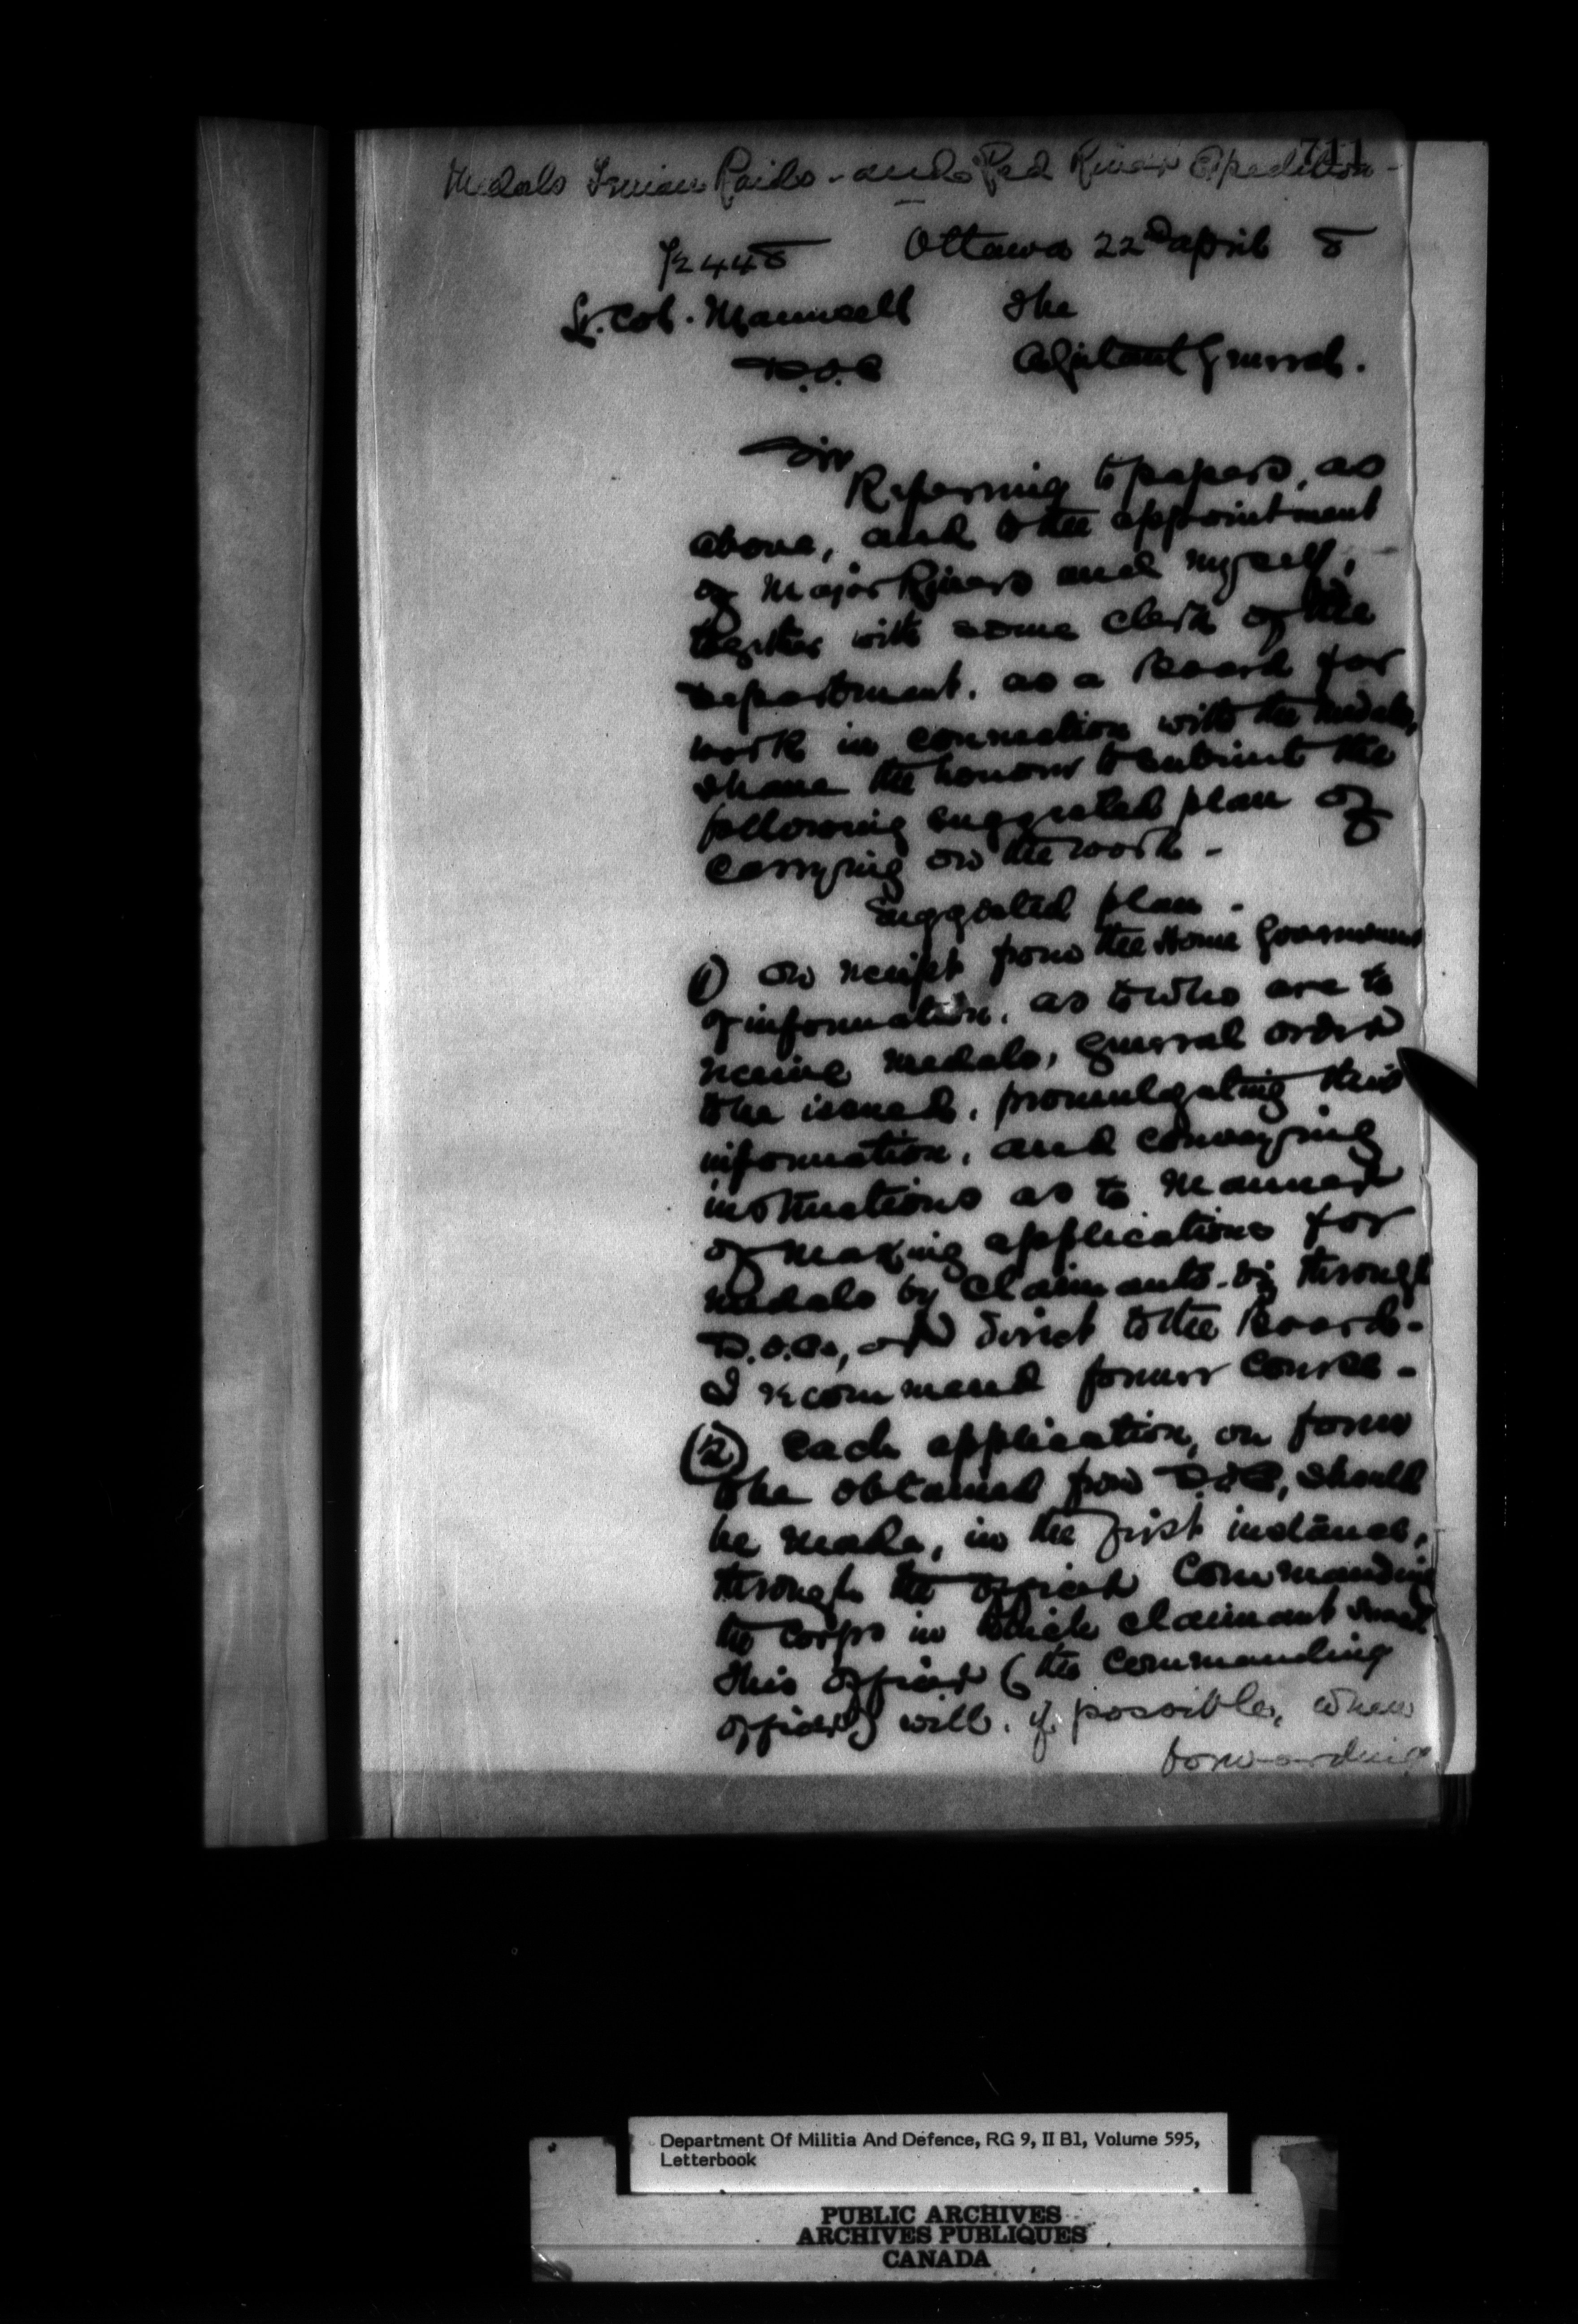 711
Medals Fenian Raids - and Red River Expedition -
Ottawa 22nd April 8
Lt. Col. Maunsell The
D.O.C Adjutant General.
Sir
Referring to papers, as
above, and to the appointment
of Major Rivers and myself,
together with some clerk of the
Department, as a Board for
work in connection with the medals,
I have the honour to submit the
following suggested plan of
carrying on the work -
Suggested plan -
1) On receipt from the Home Government
of information, as to who are to
receive medals, general order
to be issued, promulgating this
information, and conveying
instructions as to manner
of making applications for
medals by claimants - viz through
D.O.Cs, or direct to the Board -
I recommend former course -
(2) Each application, on form
to be obtained from D.O.C, should
be made, in the first instance,
through the officer Commanding
the corps in which claimant served
This officer (the Commanding
officer) will, if possible, when
forwarding
Department Of Militia And Defence, RG 9, II B1, Volume 595,
Letterbook
PUBLIC ARCHIVES
ARCHIVES PUBLIQUES
CANADA